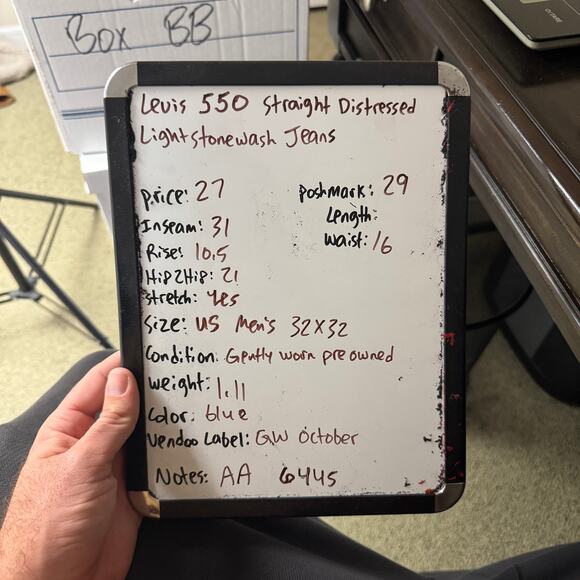 Box BB
Levis 550 Straight Distressed
Light stonewash Jeans
Price: 27
Poshmark: 29
Inseam: 31
Length:
Rise: 10.5
Waist: 16
Hip2Hip: 21
Stretch: Yes
Size: US Men's 32x32
Condition: Gently worn pre owned
Weight: 1.11
Color: blue
Vendoo Label: GW October
Notes: AA 6445